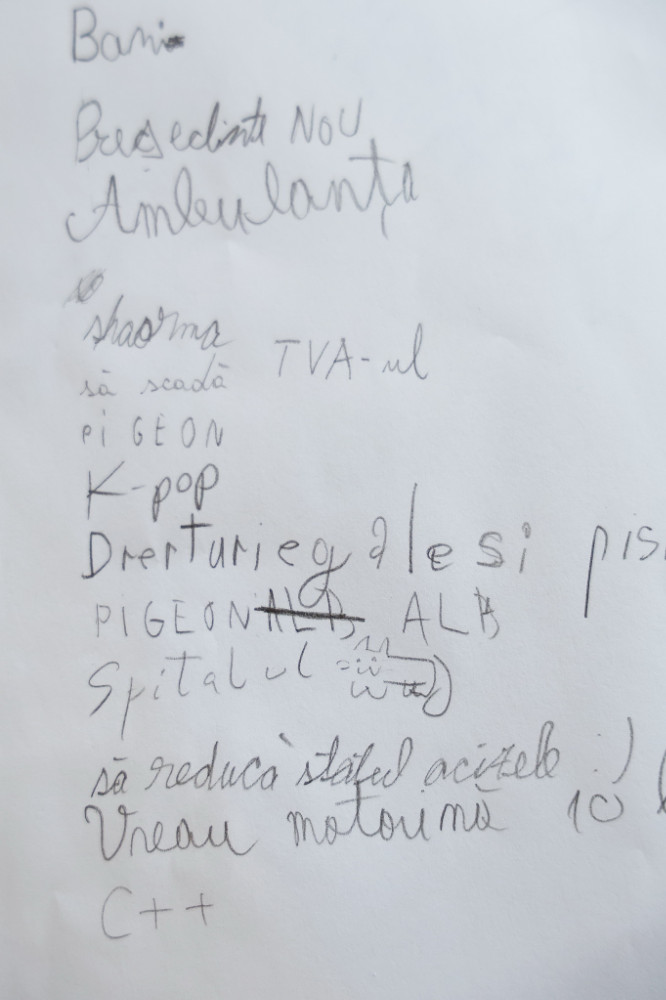 Bani
Președinte NOU
Ambulanța
shaorma
să scadă TVA-ul
PiGEON
K-pop
Drerturi egale si pis
PIGEON ALB
Spitalul
să reducă statul acizele :)
Vreau motorină 10 l
C++